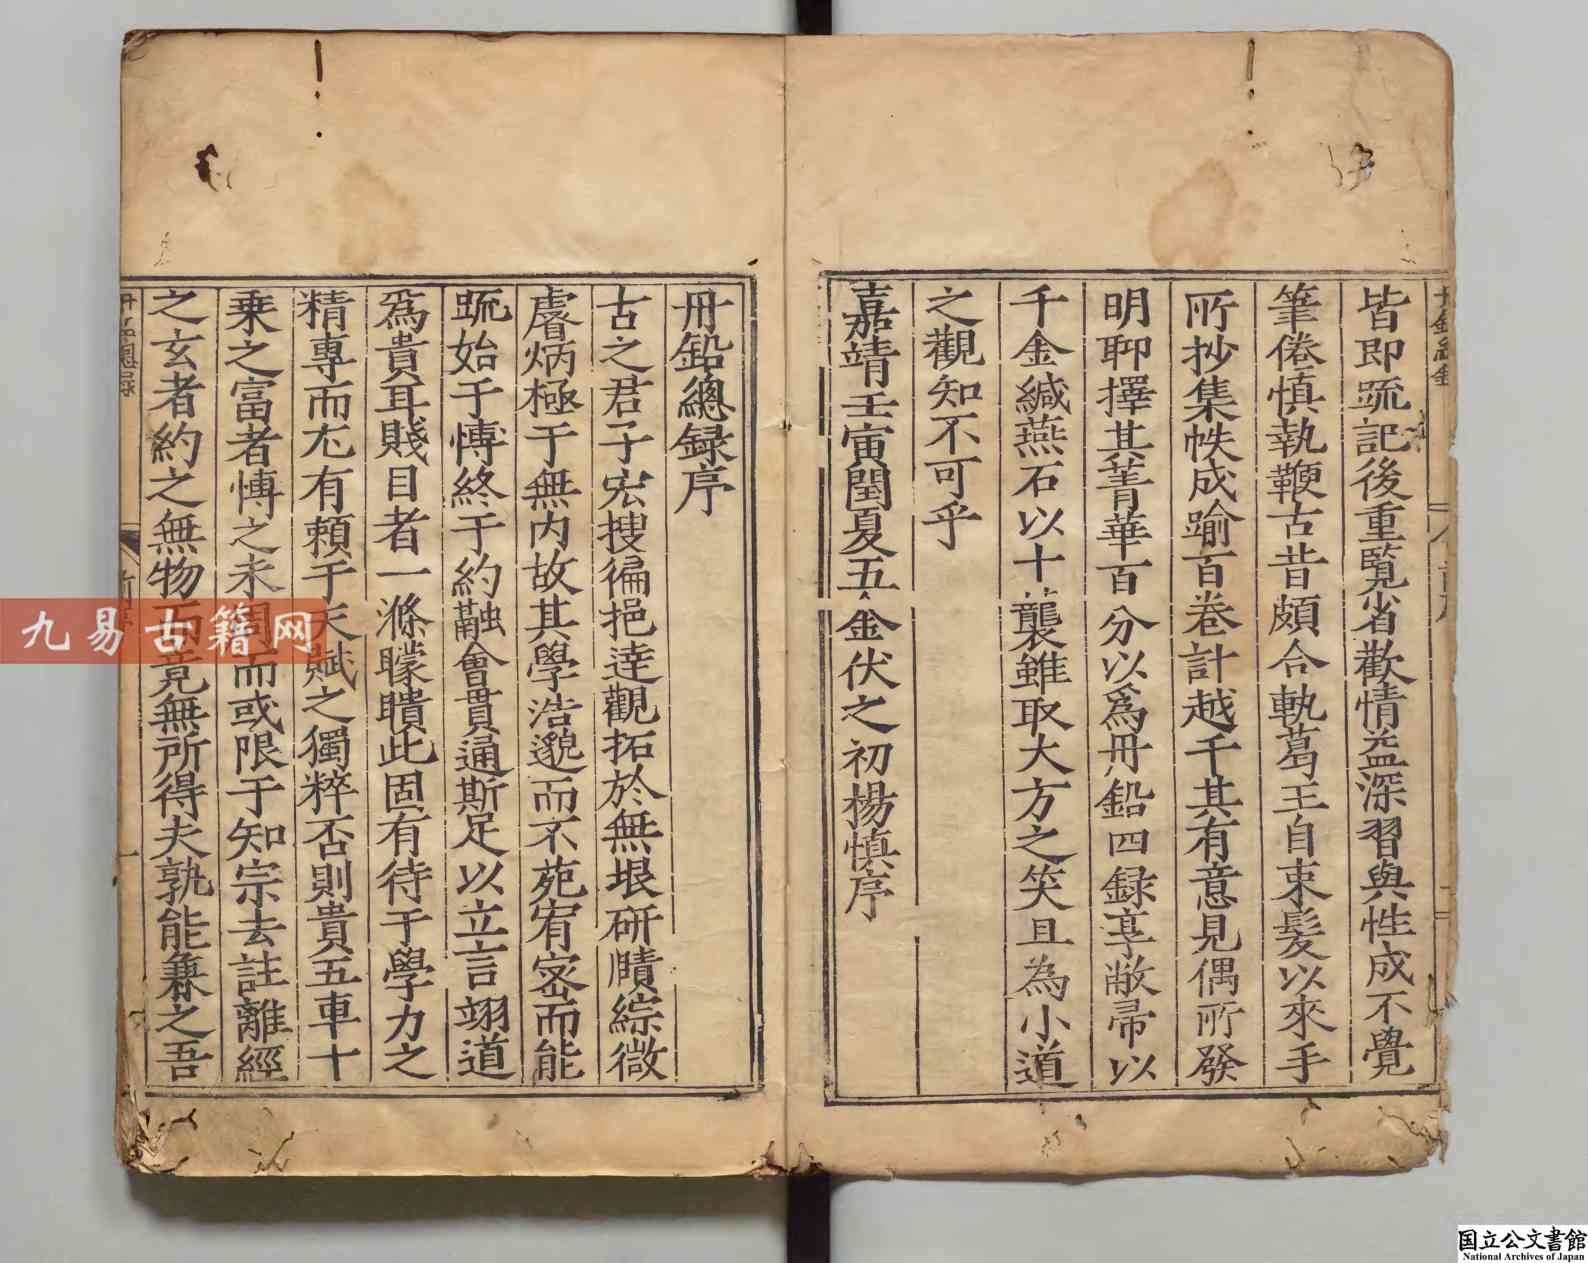 皆即䟽記後重覧省歡情益深習與性成不覺
筆倦愼執鞭古昔頗合軌葛王自束髪以來手
所抄集帙成踰百卷計越千其有意見偶所發
明聊擇其菁華百分以爲丹鉛四録享敝帚以
千金緘燕石以十襲雖取大方之笑且為小道
之觀知不可乎
嘉靖壬寅閏夏五金伏之初楊愼序
丹鉛總録序
古之君子宏搜徧挹逹觀拓於無垠研賾綜微
睿炳極于無内故其學浩邈而不苑宥宻而能
䟽始于愽終于約融會貫通斯足以立言翊道
爲貴耳賤目者一滌矇瞶此固有待于學力之
精專而尢有賴于天賦之獨粹否則貴五車十
乗之富者愽之未周而或限于知宗去註離經
之玄者約之無物而竟無所得夫孰能兼之吾
九易古籍网
国立公文書館
National Archives of Japan